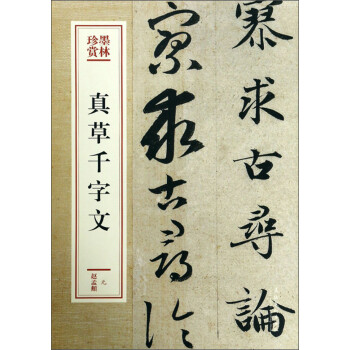 寥求古尋論
寥求古尋論
墨林
珍赏
真草千字文
元
赵孟頫